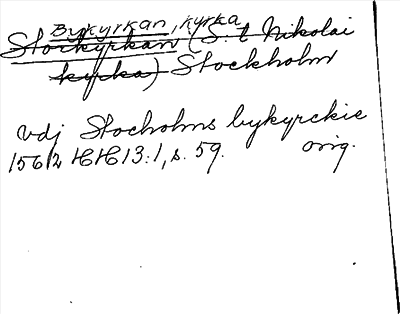 Bykyrkan, kyrka
Storkyrkan (S:t Nikolai
kyrka) Stockholm
vdj Stocholms bykyrckie
1562 HH 13:1, s. 59. orig.